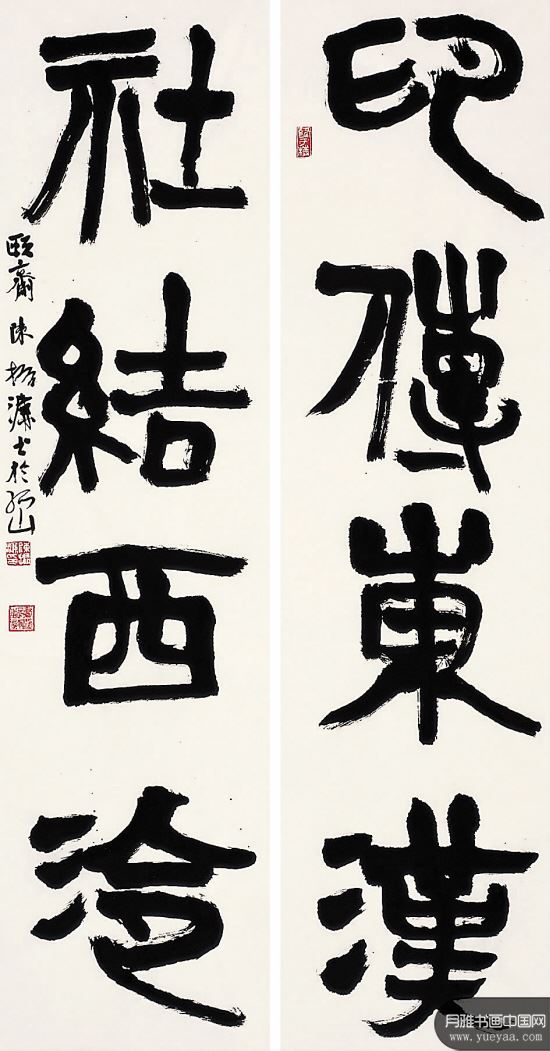 印傳東漢
社結西泠
頤齋 陳振濂书於孤山
月雅书画中国网
www.yueyaa.com